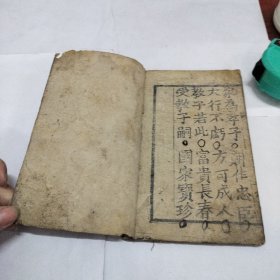 為孝子。作忠臣
大行不虧。方可成人。
教子若此。富貴長春。
受子嗣。國家寶珍。